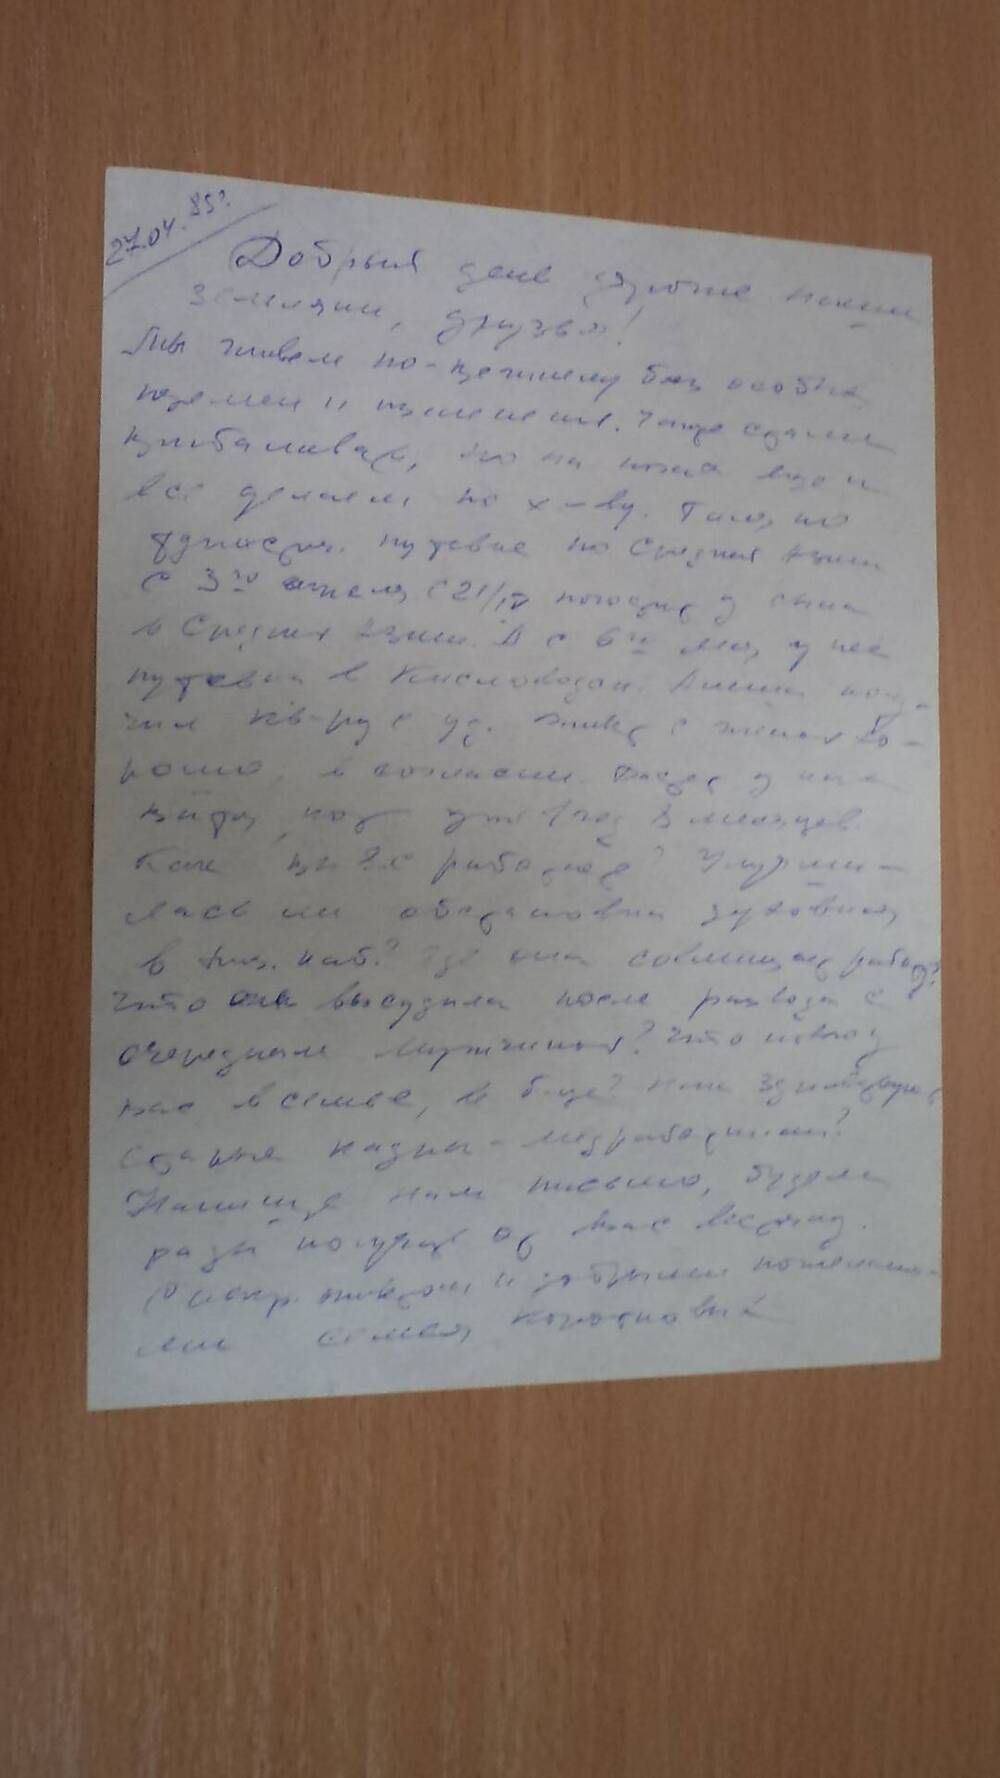 27.04.85г.
Добрый день старые наши
земляки, друзья!
Мы живем по-прежнему без особых
перемен и изменений. Чаще стали
прибаливать, но на ногах еще и
все делаем по х-ву. Тома, по
туристич. путевке по Средней Азии
с 3го апреля, с 21/IV погостит у сына
в Средней Азии. А с 6го мая у нее
путевка в Кисловодск. полу-
чил кв-ру с уд. Живет с женой хо-
рошо, в согласии. Растет у них
уже 1 год 8 месяцев.
Как работает? Улучши-
лась ли обстановка духовная
в каб.? Где она совмещает работу?
Что она высудила после развода с
очередным мужчиной? Что нового у
вас в семье, в быту? Как здравствуют
старые кадры-медработники?
Напишите нам письмо, будем
рады получить от вас весточку.
С искр. приветом и добрыми пожелания-
ми семья